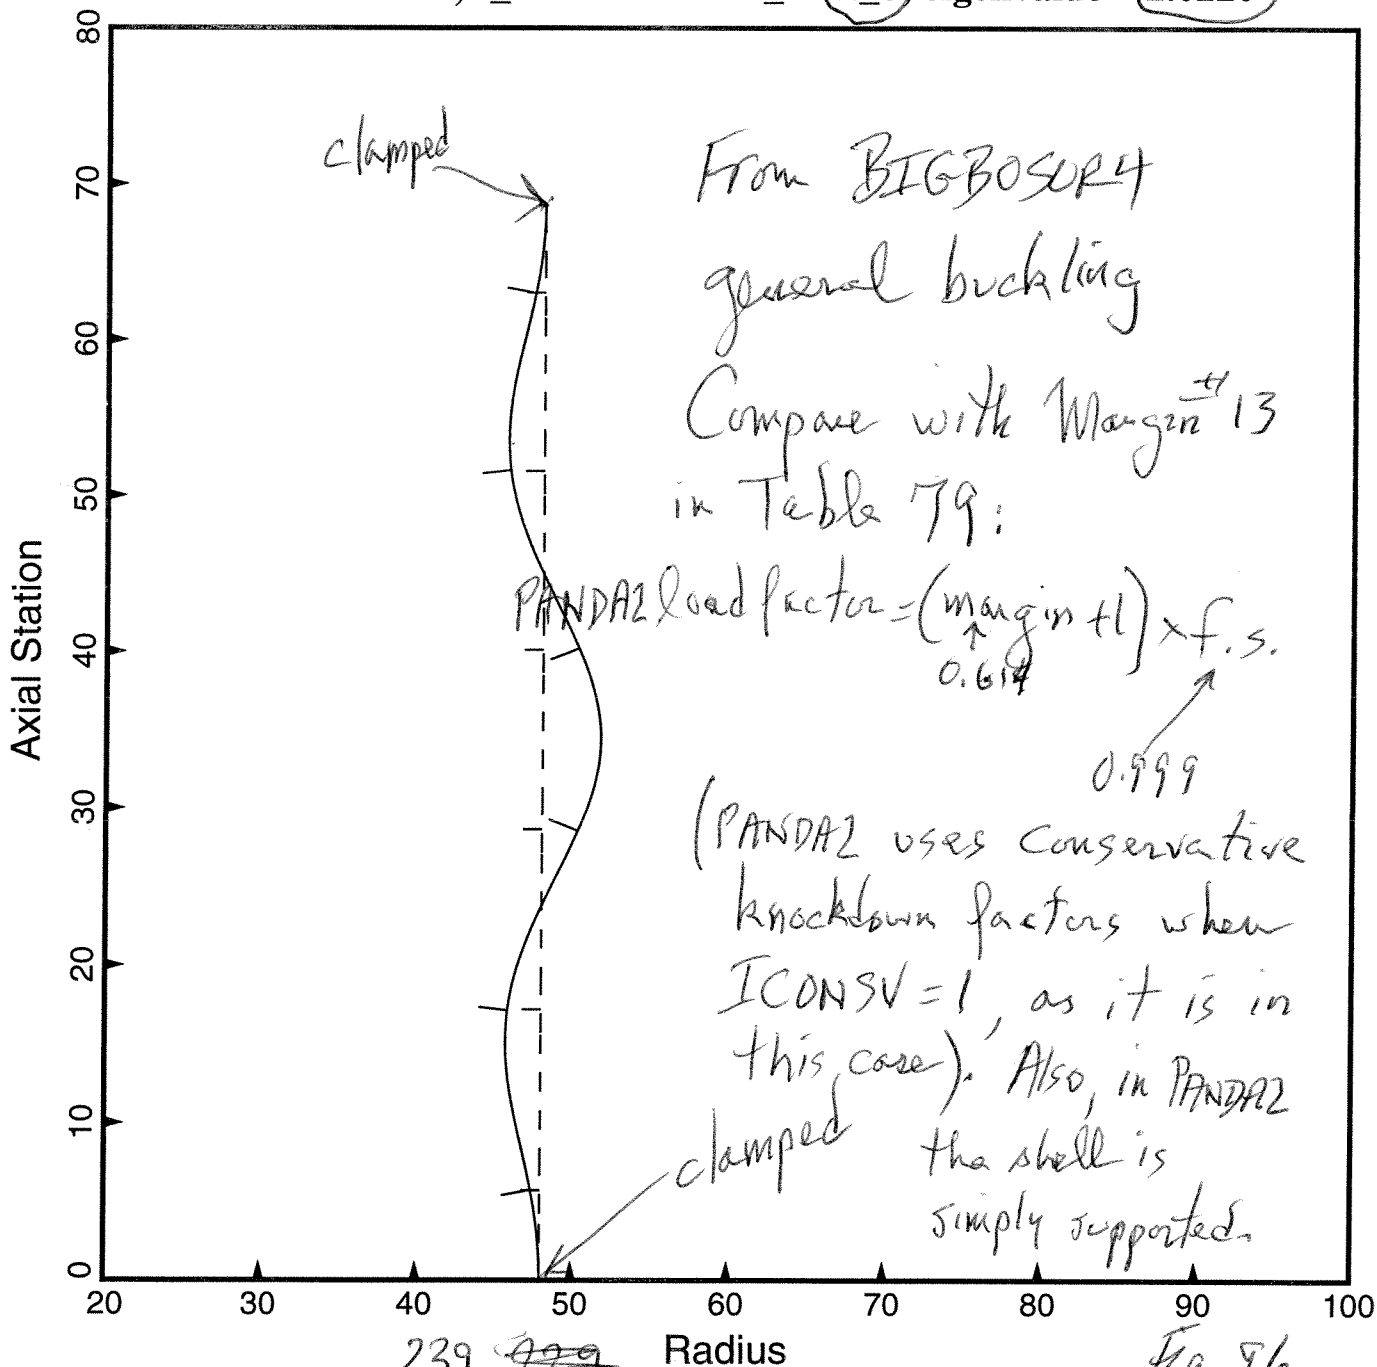 eigenvalue
80
70
60
50
40
30
20
10
0
Axial Station
clamped
From BIGBOSOR4
general buckling
Compare with Margin #13
in Table 79:
PANDA2 load factor = (margin + 1) x f.s.
0.614
0.999
(PANDA2 uses conservative
knockdown factors when
ICONSV = 1, as it is in
this case). Also, in PANDA2
the shell is
simply supported.
clamped
20 30 40 50 60 70 80 90 100
Radius
239